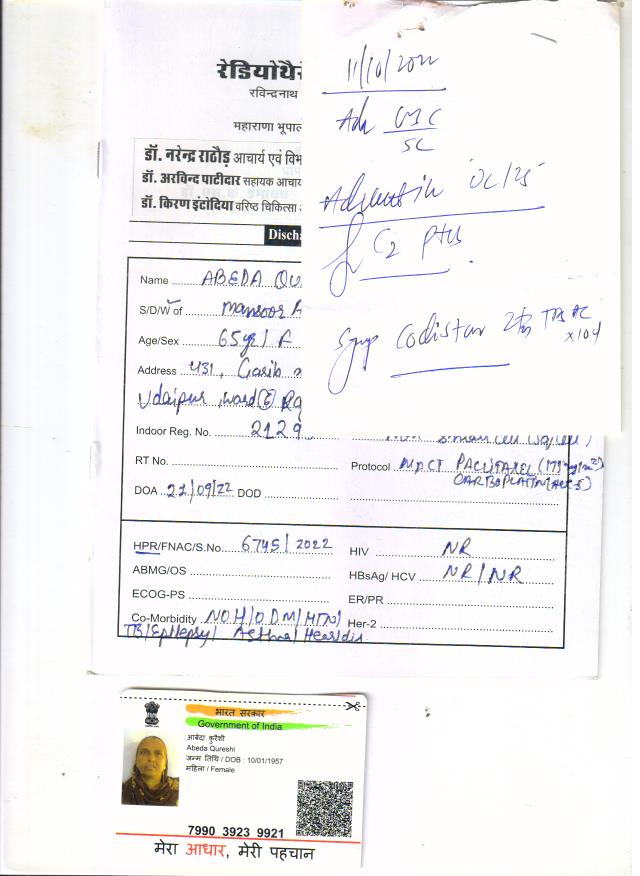 11/10/2022
Adv CBC
SC
Admit in OC/25
for C2 P+C
Syp Codistar 2tsf TDS
रेडियोथै
रविन्द्रनाथ
महाराणा भूपाल
डॉ. नरेन्द्र राठौड़ आचार्य एवं विभ
डॉ. अरविन्द पाटीदार सहायक आचा
डॉ. किरण इंटोदिया वरिष्ठ चिकित्सा
Discha
Name ABEDA QU
S/D/W of mansoor A
Age/Sex 65yr/F
Address 431, Garib
Udaipur, ward 6 Ra
Indoor Reg. No. 2129
RT No.
Protocol NACT PACLITAXEL (175mg/m2)
CARBOPLATIN (AUC 5)
DOA 22/09/22 DOD
HPR/FNAC/S.No. 6745/2022 HIV NR
ABMG/OS HBsAg/ HCV NR/NR
ECOG-PS ER/PR
Co-Morbidity NO H/O DM/HTN/ Her-2
TB/Epilepsy/ Asthma/ Heart dis.
भारत सरकार
Government of India
आबेदा कुरैशी
Abeda Qureshi
जन्म तिथि / DOB : 10/01/1957
महिला / Female
7990 3923 9921
मेरा आधार, मेरी पहचान